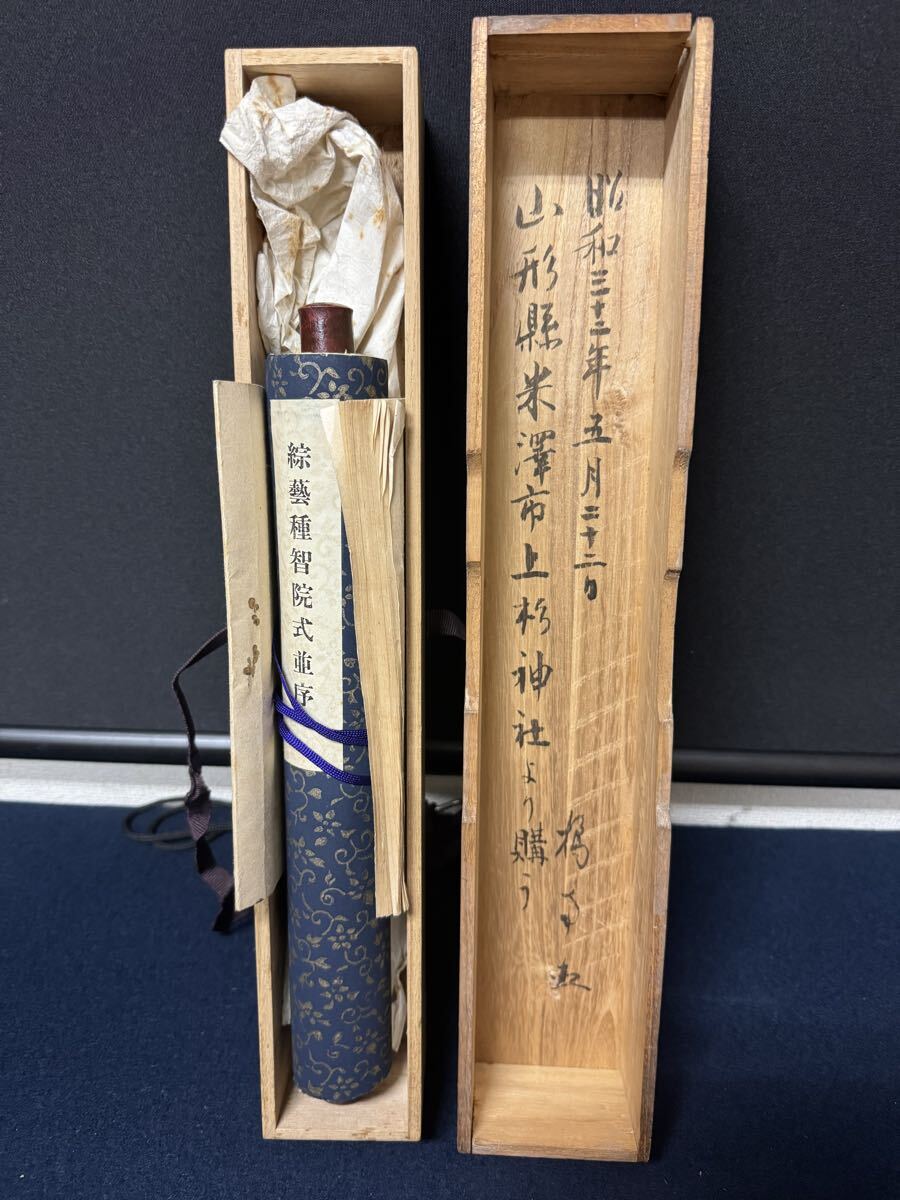 綜藝種智院式並序
昭和三十二年五月二十二日
山形縣米澤市上杉神社より購う